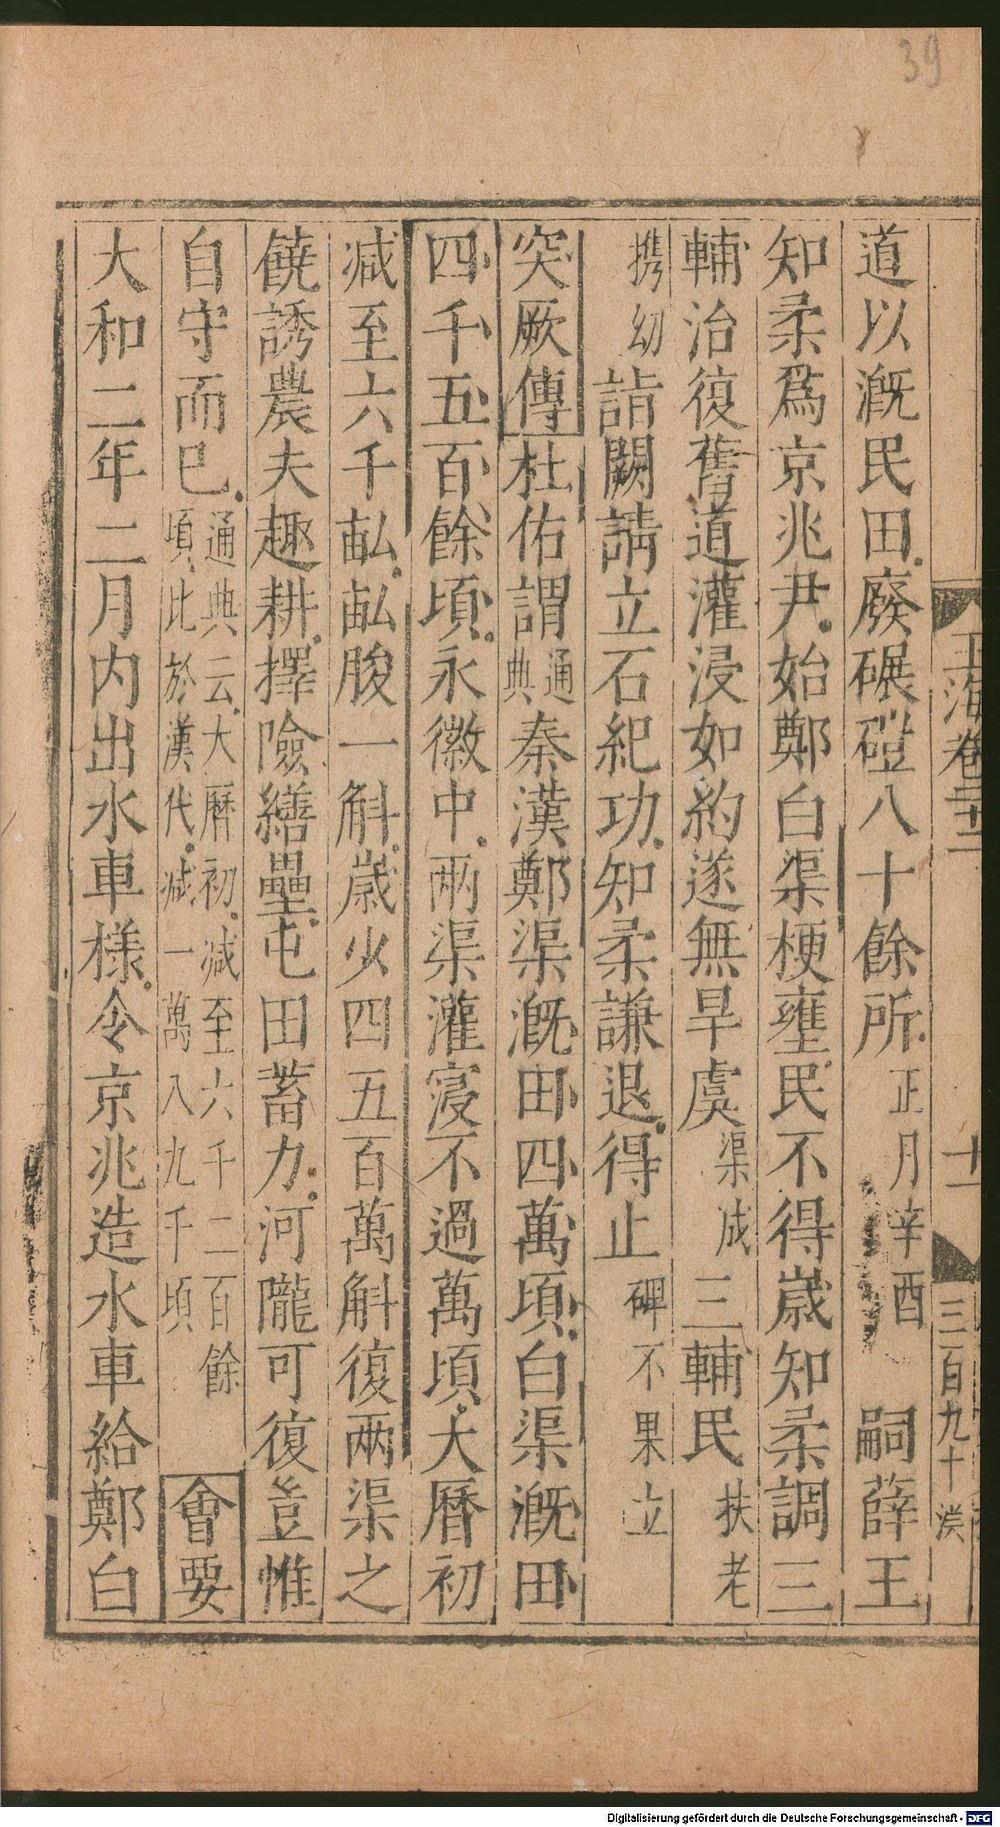 39
玉海卷二十二
十一
三百九十
道以漑民田廢碾磑八十餘所正月辛酉 嗣薛王
知柔爲京兆尹始鄭白渠梗壅民不得歲知柔調三
輔治復舊道灌浸如約遂無旱虞渠成三輔民扶老
攜幼詣闕請立石紀功知柔謙退得止碑不果立
突厥傳杜佑謂通典秦漢鄭渠漑田四萬頃白渠漑田
四千五百餘頃永徽中兩渠灌寖不過萬頃大曆初
減至六千畝畝朘一斛歲少四五百萬斛復兩渠之
饒誘農夫趣耕擇險繕壘屯田蓄力河隴可復豈惟
自守而已通典云大曆初減至六千二百餘頃比於漢代減一萬八九千頃 會要
大和二年二月內出水車樣令京兆造水車給鄭白
Digitalisierung gefördert durch die Deutsche Forschungsgemeinschaft - DFG